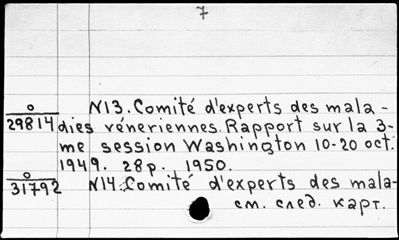 7
o N13. Comité d'experts des mala-
29814 dies véneriennes. Rapport sur la 3-
me session Washington 10-20 oct.
1949. 28p. 1950.
o N14. Comité d'experts des mala-
31792
см. след. карт.